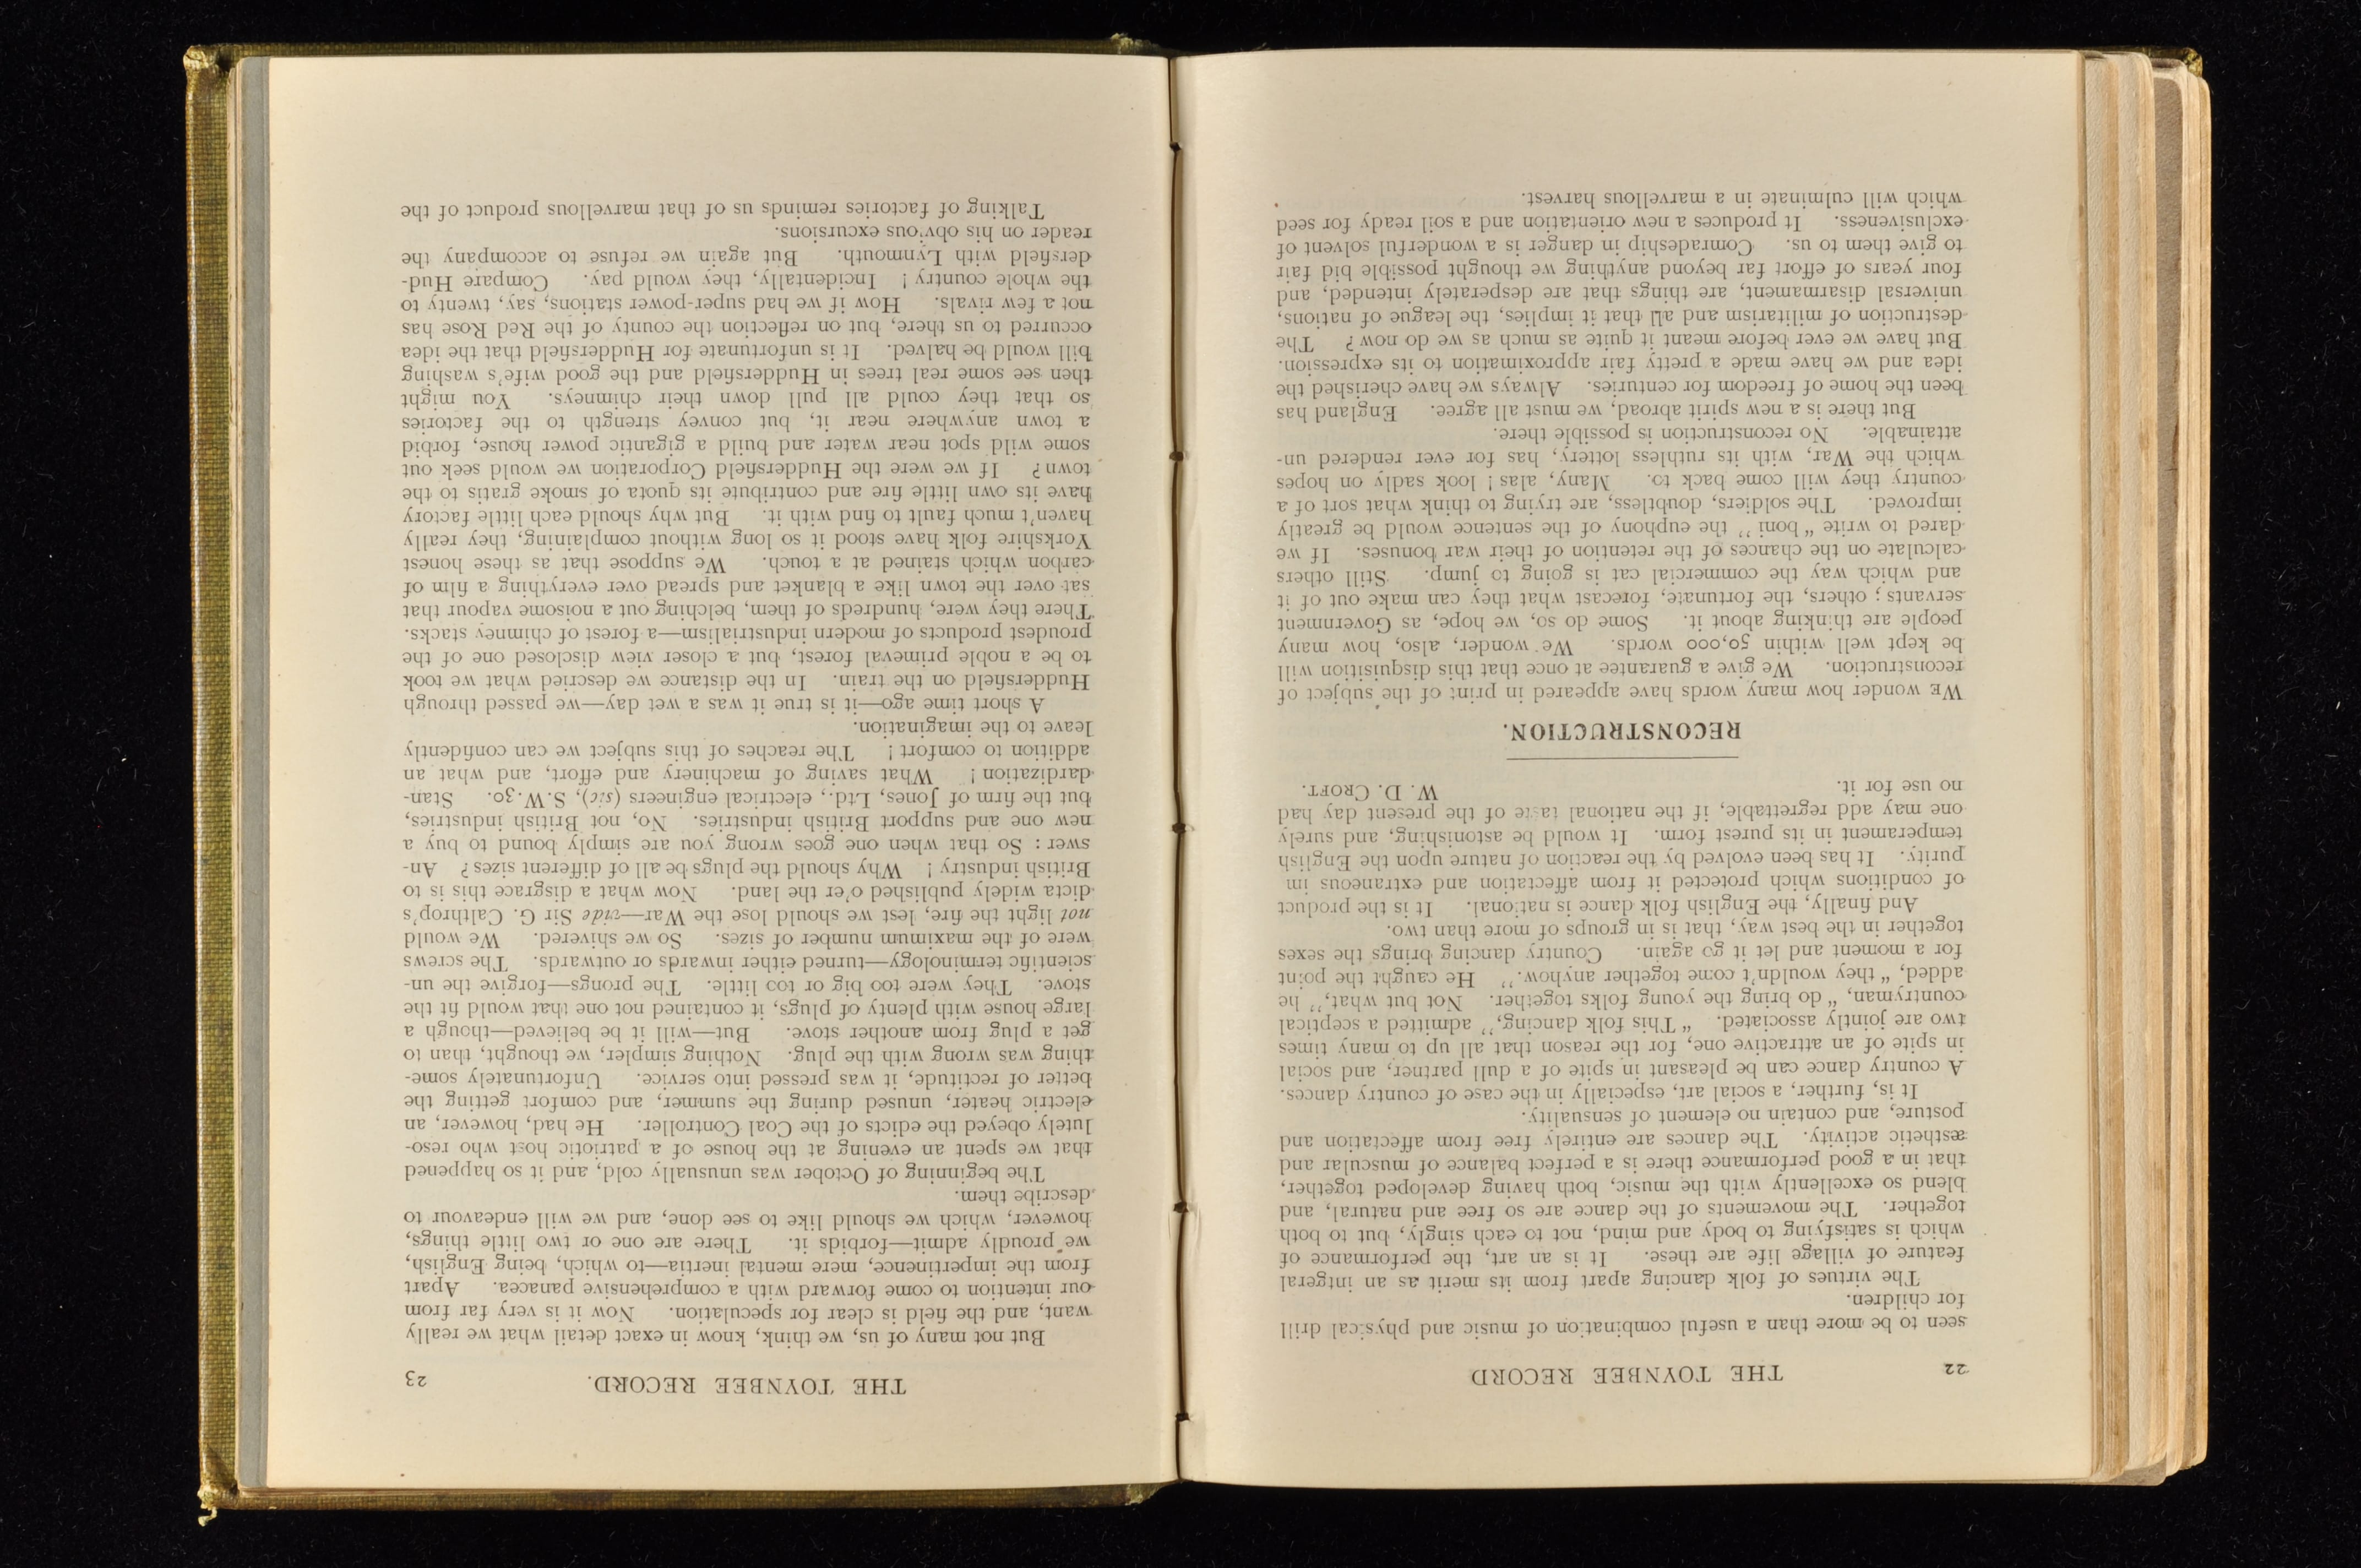 22
THE TOYNBEE RECORD
seen to be more than a useful combination of music and physical drill
for children.
The virtues of folk dancing apart from its merit as an intgeral
feature of village life are these. It is an art, the performance of
which is satisfying to body and mind, not to each singly, but to both
together. The movements of the dance are so free and natural, and
blend so excellently with the music, both having developed together,
that in a good performance there is a perfect balance of muscular and
æsthetic activity. The dances are entirely free from affectation and
posture, and contain no element of sensuality.
It is, further, a social art, especially in the case of country dances.
A country dance can be pleasant in spite of a dull partner, and social
in spite of an attractive one, for the reason that all up to many times
two are jointly associated. "This folk dancing," admitted a sceptical
countryman, "do bring the young folks together. Not but what," he
added, "they wouldn't come together anyhow." He caught the point
for a moment and let it go again. Country dancing brings the sexes
together in the best way, that is in groups of more than two.
And finally, the English folk dance is national. It is the product
of conditions which protected it from affectation and extraneous im
purity. It has been evolved by the reaction of nature upon the English
temperament in its purest form. It would be astonishing, and surely
one may add regrettable, if the national taste of the present day had
no use for it. W. D. CROFT.
RECONSTRUCTION.
WE wonder how many words have appeared in print of the subject of
reconstruction. We give a guarantee at once that this disquisition will
be kept well within 50,000 words. We wonder, also, how many
people are thinking about it. Some do so, we hope, as Government
servants; others, the fortunate, forecast what they can make out of it
and which way the commercial cat is going to jump. Still others
calculate on the chances of the retention of their war bonuses. If we
dared to write "boni" the euphony of the sentence would be greatly
improved. The soldiers, doubtless, are trying to think what sort of a
country they will come back to. Many, alas! look sadly on hopes
which the War, with its ruthless lottery, has for ever rendered un-
attainable. No reconstruction is possible there.
But there is a new spirit abroad, we must all agree. England has
been the home of freedom for centuries. Always we have cherished the
idea and we have made a pretty fair approximation to its expression.
But have we ever before meant it quite as much as we do now? The
destruction of militarism and all that it implies, the league of nations,
universal disarmament, are things that are desperately intended, and
four years of effort far beyond anything we thought possible bid fair
to give them to us. Comradeship in danger is a wonderful solvent of
exclusiveness. It produces a new orientation and a soil ready for seed
which will culminate in a marvellous harvest.
THE TOYNBEE RECORD.
23
But not many of us, we think, know in exact detail what we really
want, and the field is clear for speculation. Now it is very far from
our intention to come forward with a comprehensive panacea. Apart
from the impertinence, mere mental inertia—to which, being English,
we proudly admit—forbids it. There are one or two little things,
however, which we should like to see done, and we will endeavour to
describe them.
The beginning of October was unusually cold, and it so happened
that we spent an evening at the house of a patriotic host who reso-
lutely obeyed the edicts of the Coal Controller. He had, however, an
electric heater, unused during the summer, and comfort getting the
better of rectitude, it was pressed into service. Unfortunately some-
thing was wrong with the plug. Nothing simpler, we thought, than to
get a plug from another stove. But—will it be believed—though a
large house with plenty of plugs, it contained not one that would fit the
stove. They were too big or too little. The prongs—forgive the un-
scientific terminology—turned either inwards or outwards. The screws
were of the maximum number of sizes. So we shivered. We would
not light the fire, lest we should lose the War—vide Sir G. Calthrop's
dicta widely published o'er the land. Now what a disgrace this is to
British industry! Why should the plugs be all of different sizes? An-
swer: So that when one goes wrong you are simply bound to buy a
new one and support British industries. No, not British industries,
but the firm of Jones, Ltd., electrical engineers (sic), S.W.30. Stan-
dardization! What saving of machinery and effort, and what an
addition to comfort! The reaches of this subject we can confidently
leave to the imagination.
A short time ago—it is true it was a wet day—we passed through
Huddersfield on the train. In the distance we descried what we took
to be a noble primeval forest, but a closer view disclosed one of the
proudest products of modern industrialism—a forest of chimney stacks.
There they were, hundreds of them, belching out a noisome vapour that
sat over the town like a blanket and spread over everything a film of
carbon which stained at a touch. We suppose that as these honest
Yorkshire folk have stood it so long without complaining, they really
haven't much fault to find with it. But why should each little factory
have its own little fire and contribute its quota of smoke gratis to the
town? If we were the Huddersfield Corporation we would seek out
some wild spot near water and build a gigantic power house, forbid
a town anywhere near it, but convey strength to the factories
so that they could all pull down their chimneys. You might
then see some real trees in Huddersfield and the good wife's washing
bill would be halved. It is unfortunate for Huddersfield that the idea
occurred to us there, but on reflection the county of the Red Rose has
not a few rivals. How if we had super-power stations, say, twenty to
the whole country! Incidentally, they would pay. Compare Hud-
dersfield with Lynmouth. But again we refuse to accompany the
reader on his obvious excursions.
Talking of factories reminds us of that marvellous product of the